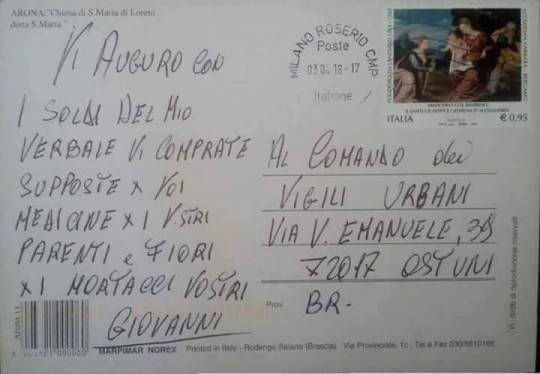 ARONA: "Chiesa di S.Maria di Loreto
detta S.Marta"
VI AUGURO CON
I SOLDI DEL MIO
VERBALE VI COMPRATE
SUPPOSTE X VOI
MEDICINE X I VSTRI
PARENTI e FIORI
XI MORTACCI VOSTRI
GIOVANNI
MILANO ROSERIO CMP
Poste
03.04.18-17
Italiane
ACCADEMIA CARRARA - BERGAMO
MADONNA COL BAMBINO
ITALIA € 0,95
AL COMANDO dei
VIGILI URBANI
VIA V. EMANUELE, 39
72017 OSTUNI
Prov. BR.
R. diritti di riproduzione riservati
Arona 11
MARPIMAR NOREX Printed in Italy - Rodengo Saiano (Brescia) Via Provinciale, 1c - Tel e Fax 030/6810166